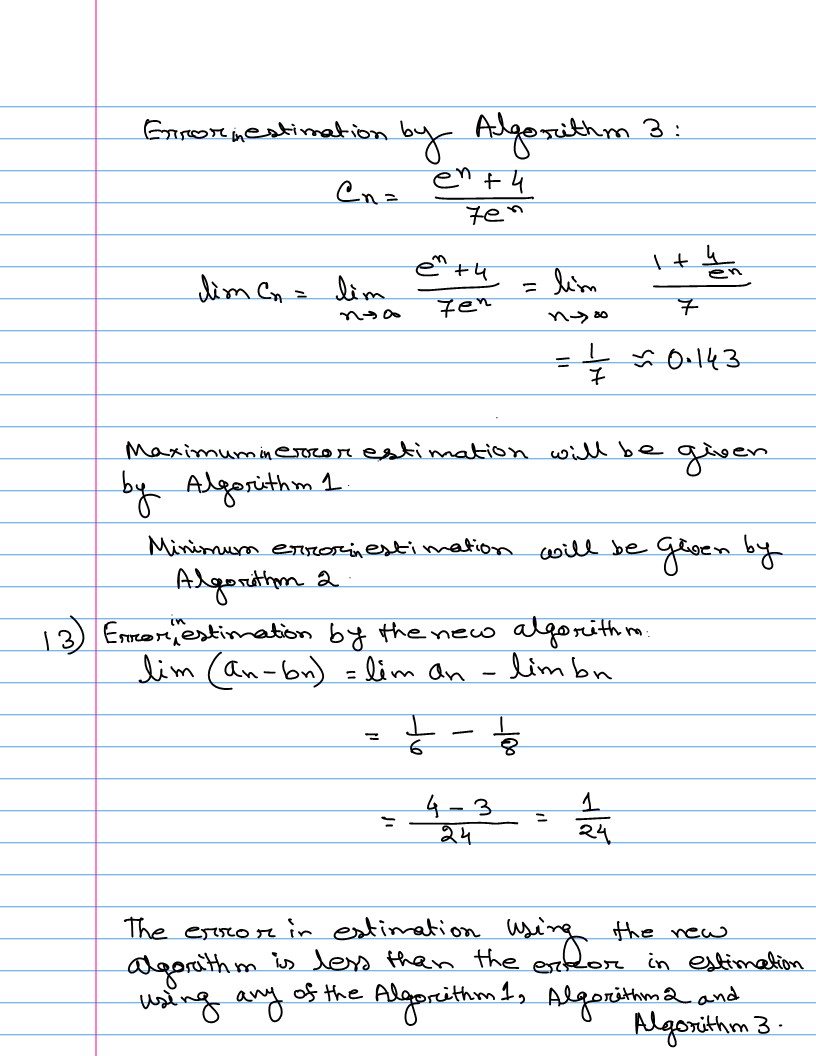 Error in estimation by Algorithm 3 :
Cn = (e^n + 4) / (7e^n)
lim Cn = lim n→∞ (e^n + 4) / (7e^n) = lim n→∞ (1 + 4/e^n) / 7
= 1/7 ≈ 0.143
Maximum in error estimation will be given
by Algorithm 1.
Minimum error in estimation will be given by
Algorithm 2.
13) Error in estimation by the new algorithm.
lim (an - bn) = lim an - lim bn
= 1/6 - 1/8
= (4 - 3) / 24 = 1/24
The error in estimation using the new
algorithm is less than the error in estimation
using any of the Algorithm 1, Algorithm 2 and
Algorithm 3.